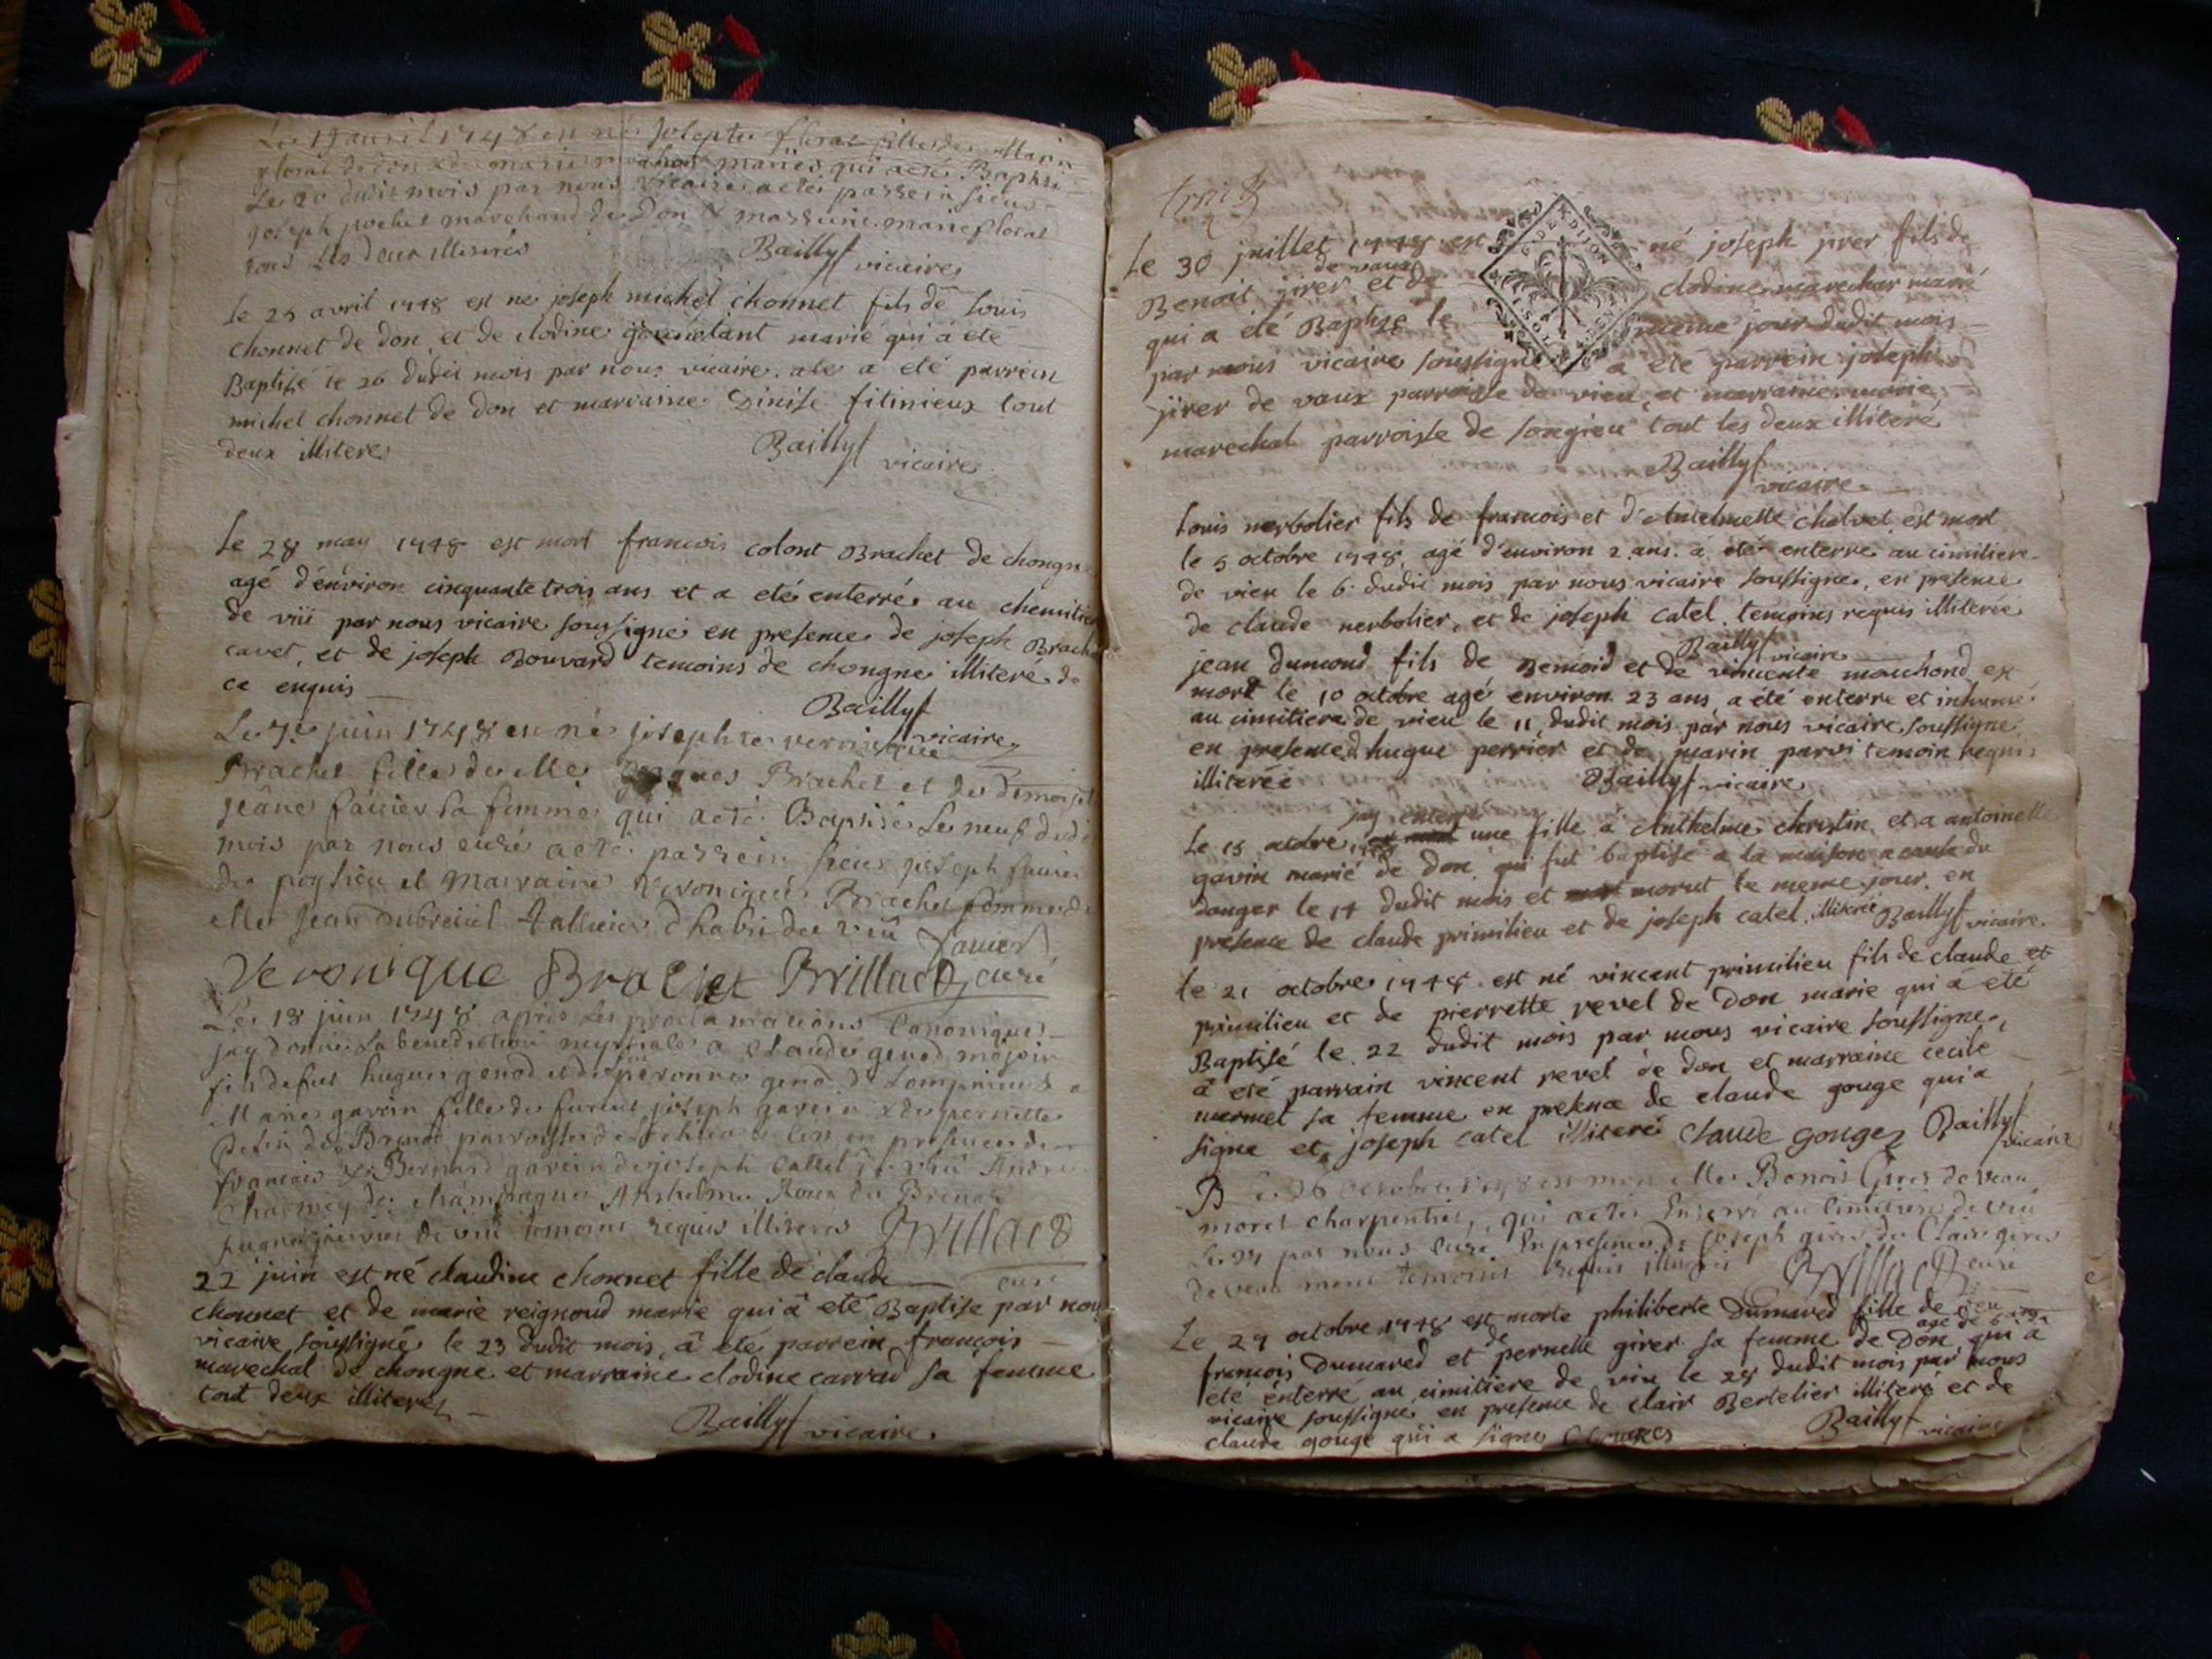 Le 19 avril 1748 est né Josepte floraz fille de Marin
floraz de don & de marie mariés qui a eté Baptisé
Le 20 dudit mois par nous vicaire a eté parrein sieur
joseph pochet marchand de Don & marreine marie floraz
tous Les deux illiterés
Baillyf vicaire
le 25 avril 1748 est né joseph michel chonnet fils de louis
chonnet de don et de clodine marié qui a eté
Baptisé le 26 dudit mois par nous vicaire. a eté parrein
michel chonnet de don et marraine Dinise fitinieux tout
deux illiteré
Baillyf vicaire
le 28 may 1748 est mort francois colont Brachet de chongne
agé d'environ cinquante trois ans et a eté enterré au chemitier
de viù par nous vicaire soussigné en presence de joseph Brachet
cavet, et de joseph Bouvard temoins de chongne illiteré de
ce enquis
Baillyf vicaire
Le 7e juin 1748 est né josephte veronique
Brachet fille de Mer jacques Brachet et de demoiselle
jeane favier sa femme qui a eté Baptisé Le neuf dudit
mois par nous curé a eté parrein sieur joseph favier
de pogsieu et Marraine Veronique Brachet femme de
Mer jean dubreuil d'habi de viù favier
Veronique Brachet Brillact curé
Le 18 juin 1748 après les proclamations canoniques
jay donné La benediction nuptiale a claude genod majeur
fils de feu hugues genod et de peronne genod de Lompnieu &
Marie gavein fille de furent joseph gavein & de pernette
de Brenod parroisse de en presence de
francois & Bernard gavein de joseph Cattel de viù André
charmey de champagne Anthelme Roux de Brenaz
de viù temoins requis illiteres Brillact
curé
22 juin est né claudine chonnet fille de claude
chonnet et de marie reignoud marié qui à eté Baptisé par nous
vicaire soussigné le 23 dudit mois, à eté parrein francois
marechal de chongne et marraine clodine carrad sa femme
tout deux illiterés
Baillyf vicaire
G. DE DIJON
Le 30 juillet 1748 est né joseph jirer fils de
Benoit jirer de vaux et de clodine marechar marié
qui a été Baptizé le meme jour dudit mois
par nous vicaire soussigné a été parrein joseph
jirer de vaux parroisse de vieu et marraine marie
marechal parroisse de songieu tout les deux illiteré
Baillyf vicaire
louis nerbolier fils de francois et d'Antelmette chalvet est mort
le 5 octobre 1748, agé d'environ 2 ans. a eté enterre au cimitiere
de vieu le 6 dudit mois par nous vicaire soussigne, en presence
de claude nerbolier, et de joseph catel. temoins requis illiterée
Baillyf vicaire
jean dumond fils de Benoid et de vincente mouchond est
mort le 10 octobre agé environ 23 ans, a été enterre et inhumé
au cimitiere de vieu le 11 dudit mois par nous vicaire soussigne
en presence d'hugue perrier et de marin parvi temoin requis
illiterée Baillyf vicaire
jay enterré
Le 15 octobre 1748 une fille a Anthelme christin et a antoinette
gavin marié de don, qui fut baptisé a la maison a cause du
danger le 14 dudit mois et morut le meme jour. en
presence de claude primilieu et de joseph catel illiteré Baillyf vicaire
le 21 octobre 1748 est né vincent primilieu fils de claude et
primilieu et de pierrette revel de don marie qui à eté
Baptisé le 22 dudit mois par nous vicaire soussigne,
à eté parrain vincent revel de don et marraine cecile
mermet sa femme en presence de claude gouge qui a
signe et joseph catel illiteré Claude gouge Baillyf vicaire
Le 26 octobre 1748 est mort Mer Benoit Girer de veau
moret charpentier, qui a eté Enterré au cimitiere de viù
Le 27 par nous curé En presence de joseph girer de Clair girer
de veau moret temoins requis illiterés Brillact curé
Le 27 octobre 1748 est morte philiberte Dumared fille de sieu
francois Dumared et de pernette girer sa femme de Don agé de 6 ans qui a
été enterré au cimitiere de viu le 28 dudit mois par nous
vicaire soussigné en presence de clair Bertelier illiteré et de
claude gouge qui a signe C Gouges Baillyf vicaire